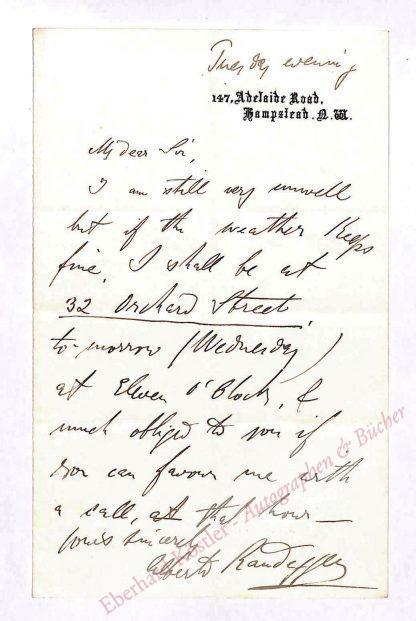 Tuesday evening
147, Adelaide Road,
Hampstead. N.W.
My dear Sir,
I am still very unwell
but if the weather keeps
fine, I shall be at
32 Orchard Street
to-morrow (Wednesday)
at Eleven O'Clock, &
much obliged to you if
you can favour me with
a call, at that hour —
Yours sincerely
Alberto Randegger
Eberhard Köstler - Autographen & Bücher